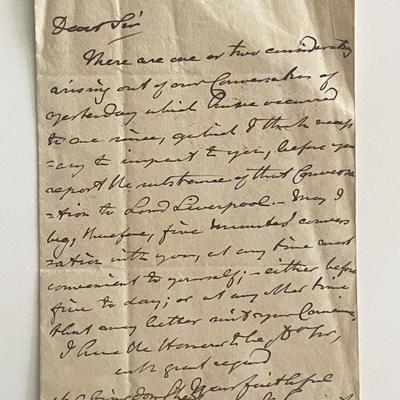 Dear Sir
There are one or two considerations
arising out of our Conversation of
yesterday which have occurred
to me since, which I think necess
=ary to impart to you, before you
report the substance of that Conversa
=tion to Lord Liverpool.— May I
beg, therefore, five minutes convers
=ation with you, at any time most
convenient to yourself;— either before
five to day; or at any other time
that may better suit your Convenience
I have the Honor to be, Dr Sir,
with great regard
Your faithful